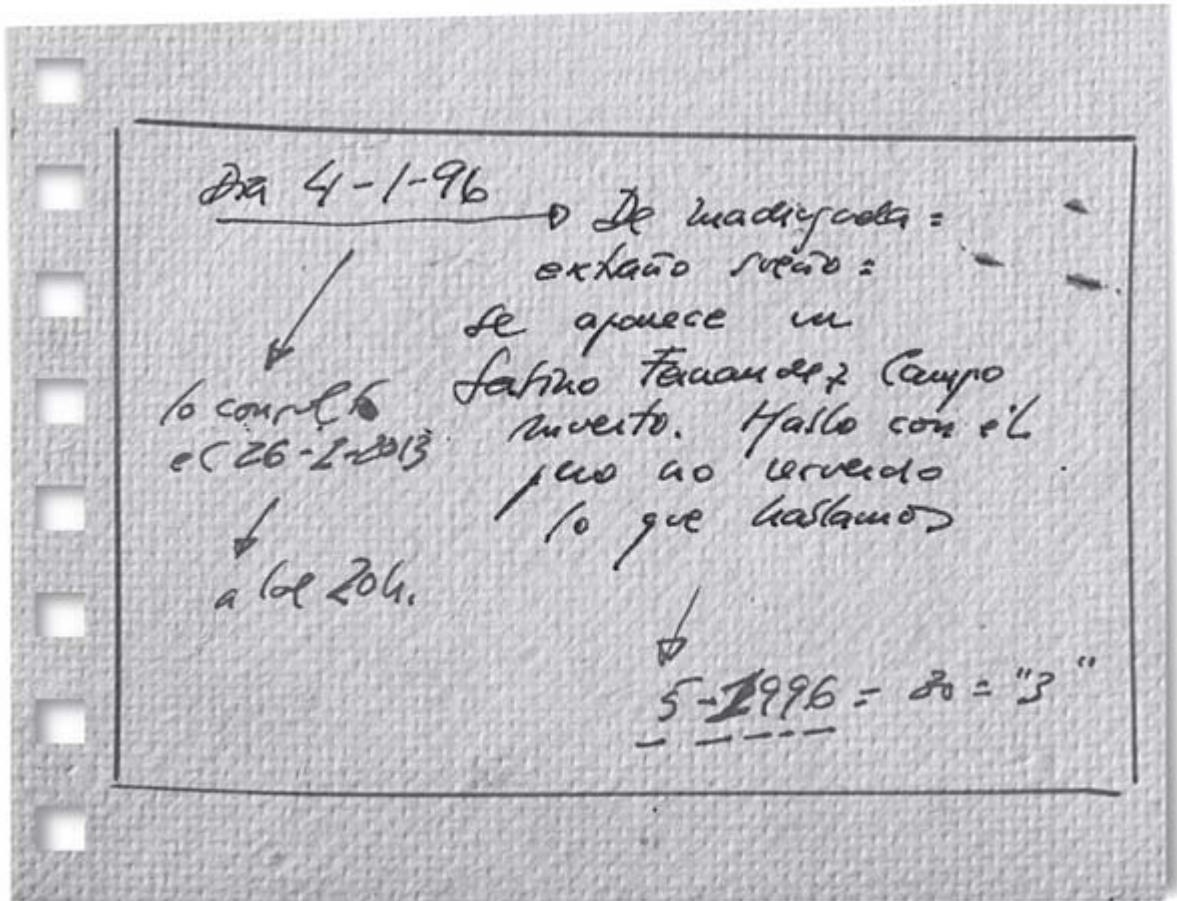 Día 4-1-96
De madrugada =
extraño sueño =
Se aparece un
Sabino Fernandez Campo
muerto. Hablo con él
pero no recuerdo
lo que hablamos
lo consulto
el 26-2-2013
a las 20h.
5-1996 = 30 = "3"